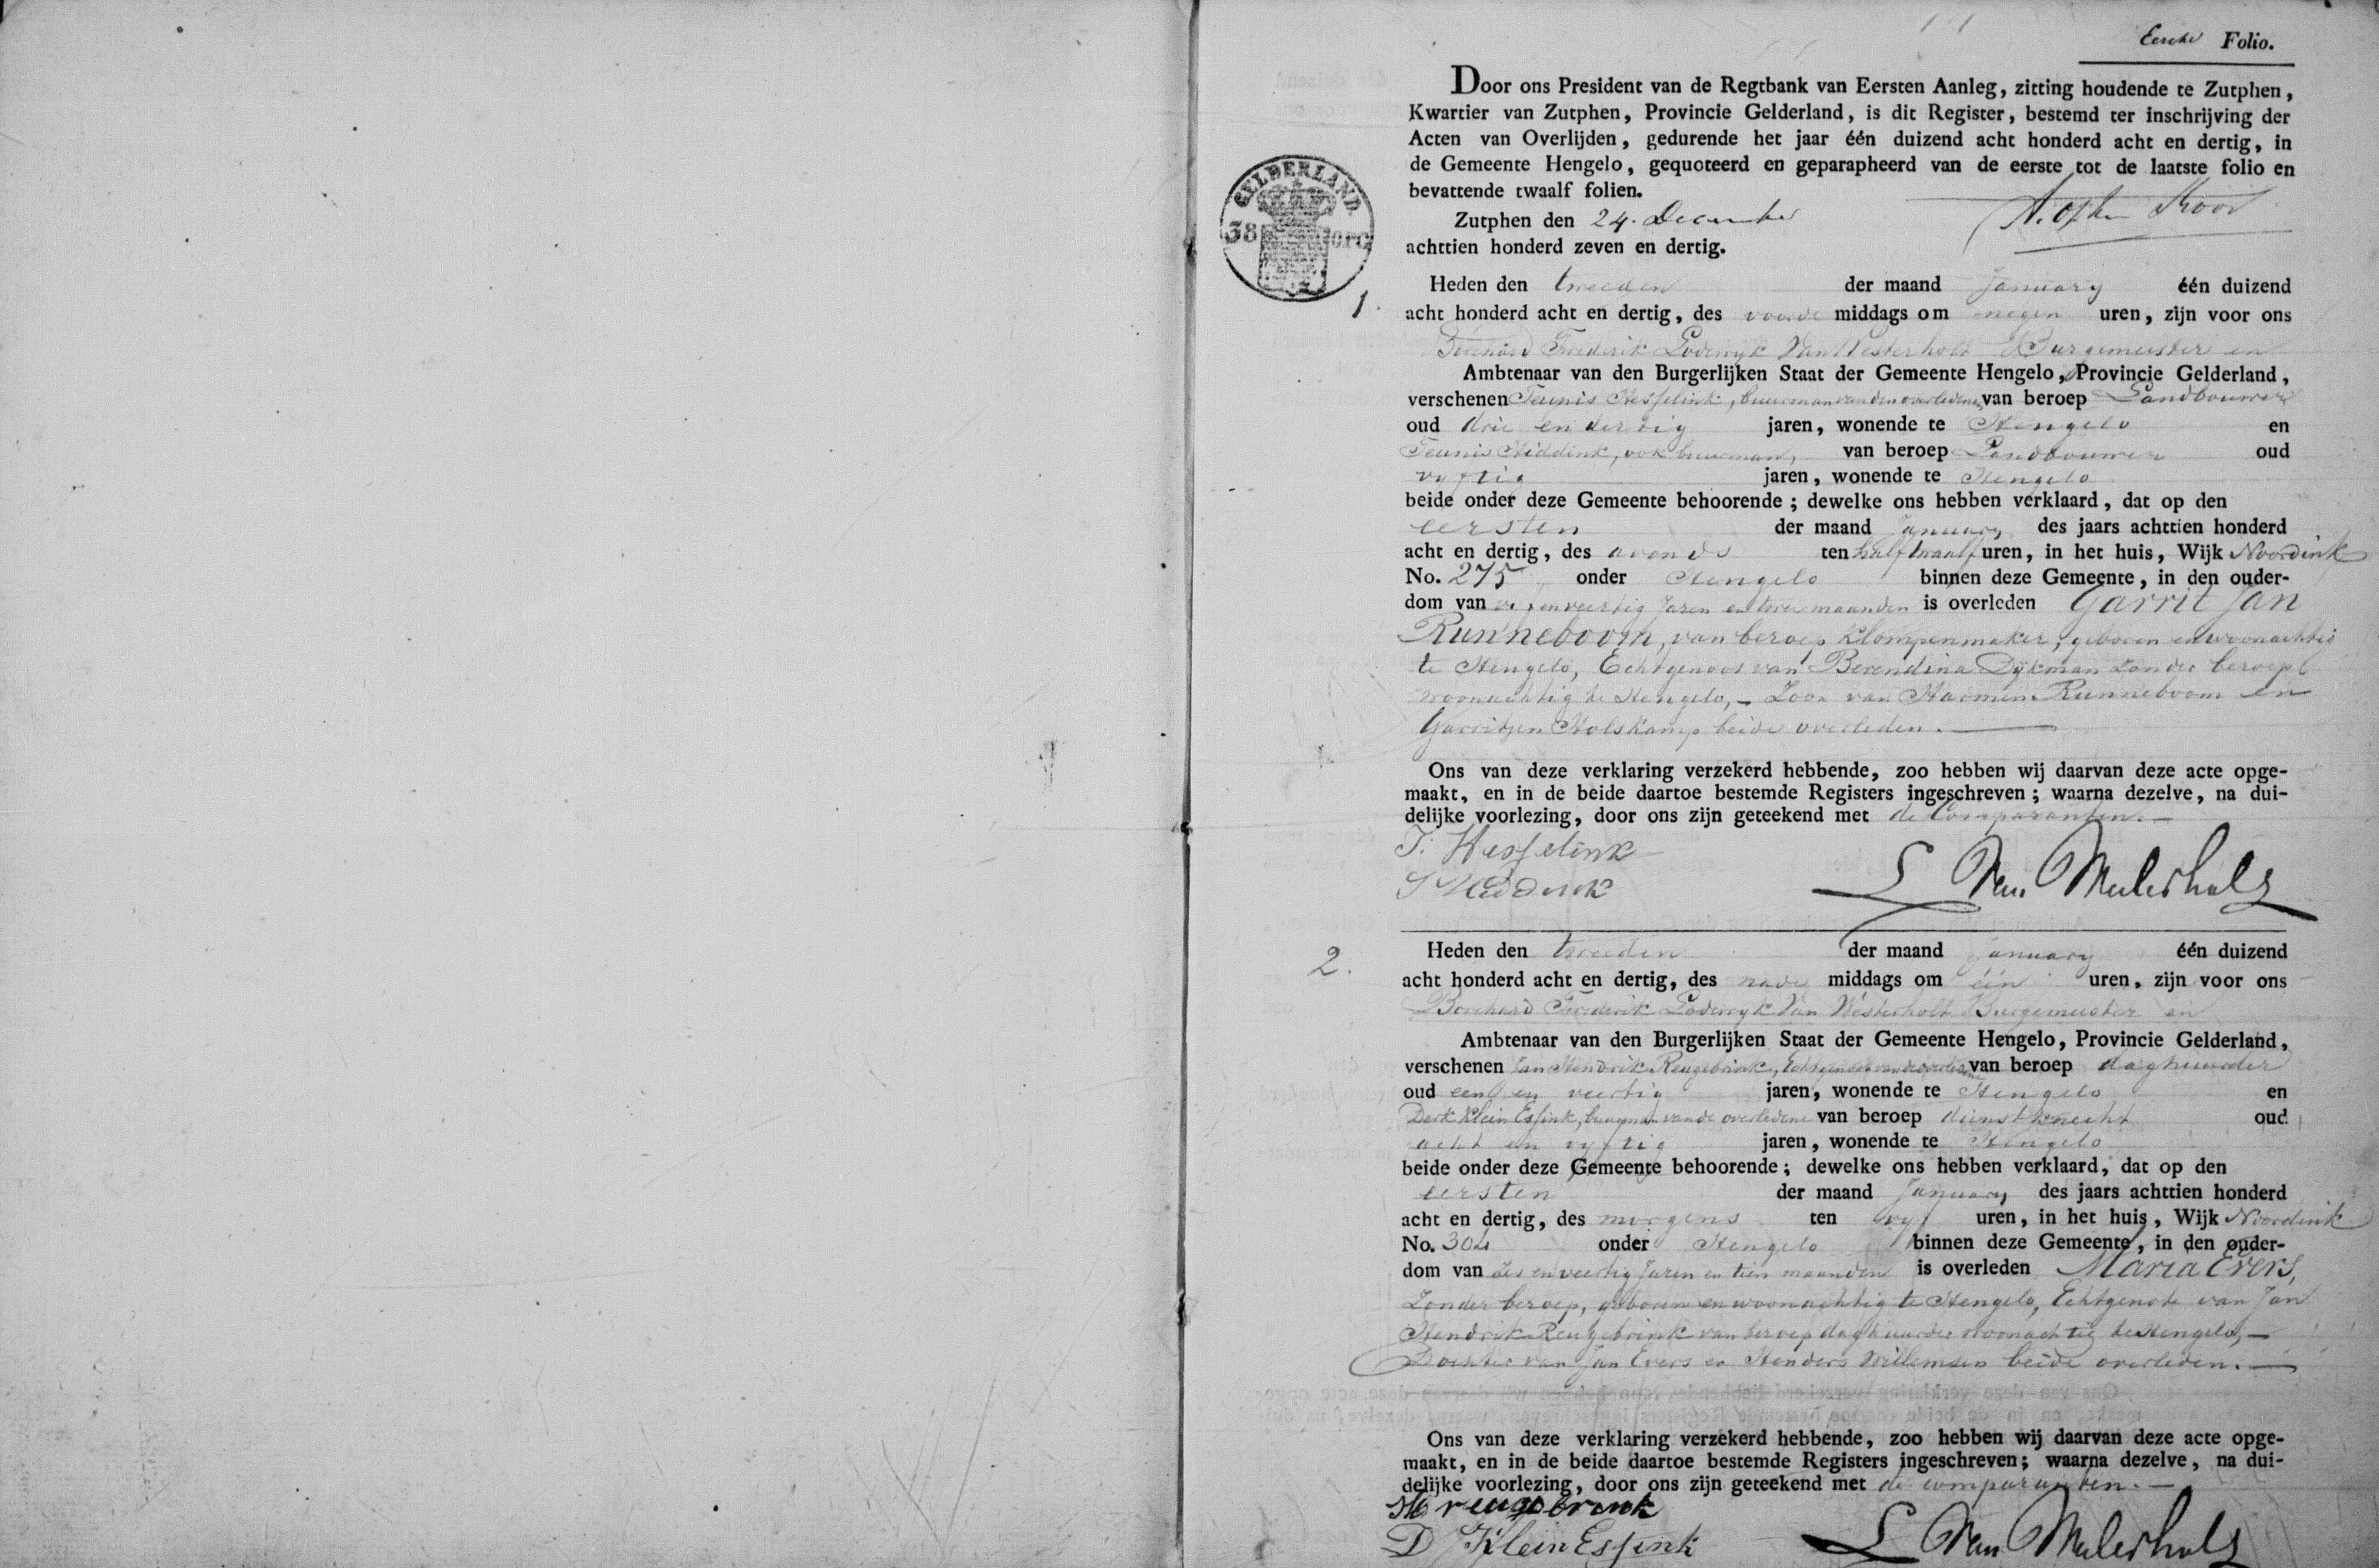 Eerste Folio.
Door ons President van de Regtbank van Eersten Aanleg, zitting houdende te Zutphen,
Kwartier van Zutphen, Provincie Gelderland, is dit Register, bestemd ter inschrijving der
Acten van Overlijden, gedurende het jaar één duizend acht honderd acht en dertig, in
de Gemeente Hengelo, gequoteerd en geparapheerd van de eerste tot de laatste folio en
bevattende twaalf folien.
Zutphen den 24. December
achttien honderd zeven en dertig.
GELDERLAND.
38
1.
Heden den tweeden der maand January één duizend
acht honderd acht en dertig, des voorde middags om negen uren, zijn voor ons
Borchard Frederik Lodewyk Van Westerholt Burgemeester en
Ambtenaar van den Burgerlijken Staat der Gemeente Hengelo, Provincie Gelderland,
verschenen Teunis Hesselink, buurman van den overledenen, van beroep Landbouwer
oud drie en dertig jaren, wonende te Hengelo en
Teunis Hiddink, ook buurman, van beroep Landbouwer oud
vyftig jaren, wonende te Hengelo
beide onder deze Gemeente behoorende; dewelke ons hebben verklaard, dat op den
eersten der maand January des jaars achttien honderd
acht en dertig, des avonds ten half twaalf uren, in het huis, Wijk Noordink
No. 275 onder Hengelo binnen deze Gemeente, in den ouder-
dom van en veertig Jaren en twee maanden is overleden Garrit Jan
Runneboom, van beroep Klompenmaker, geboren en woonachtig
te Hengelo, Echtgenoot van Berendina Dykman zonder beroep
woonachtig te Hengelo, - Zoon van Harmen Runneboom en
Garritjen Holskamp beide overleden. —
Ons van deze verklaring verzekerd hebbende, zoo hebben wij daarvan deze acte opge-
maakt, en in de beide daartoe bestemde Registers ingeschreven; waarna dezelve, na dui-
delijke voorlezing, door ons zijn geteekend met de Comparanten. —
T. Hesselink
T Hiddink
L Van Westerholt
2.
Heden den tweeden der maand January één duizend
acht honderd acht en dertig, des nade middags om één uren, zijn voor ons
Borchard Frederik Lodewyk Van Westerholt Burgemeester en
Ambtenaar van den Burgerlijken Staat der Gemeente Hengelo, Provincie Gelderland,
verschenen Jan Hendrik Reugebrink, Echtgenoot van de overledene van beroep daghuurder
oud een en veertig jaren, wonende te Hengelo en
Derk Klein Essink, buurman van de overledene van beroep dienstknecht oud
acht en vyftig jaren, wonende te Hengelo
beide onder deze Gemeente behoorende; dewelke ons hebben verklaard, dat op den
eersten der maand January des jaars achttien honderd
acht en dertig, des morgens ten vyf uren, in het huis, Wijk Noordink
No. 304 onder Hengelo binnen deze Gemeente, in den ouder-
dom van Zes en veertig Jaren en tien maanden is overleden Maria Evers,
Zonder beroep, geboren en woonachtig te Hengelo, Echtgenote van Jan
Hendrik Reugebrink van beroep daghuurder woonachtig te Hengelo, —
Dochter van Jan Evers en Henders Willemsen beide overleden. —
Ons van deze verklaring verzekerd hebbende, zoo hebben wij daarvan deze acte opge-
maakt, en in de beide daartoe bestemde Registers ingeschreven; waarna dezelve, na dui-
delijke voorlezing, door ons zijn geteekend met de comparanten. —
reugebrink
D Klein Essink
L Van Westerholt